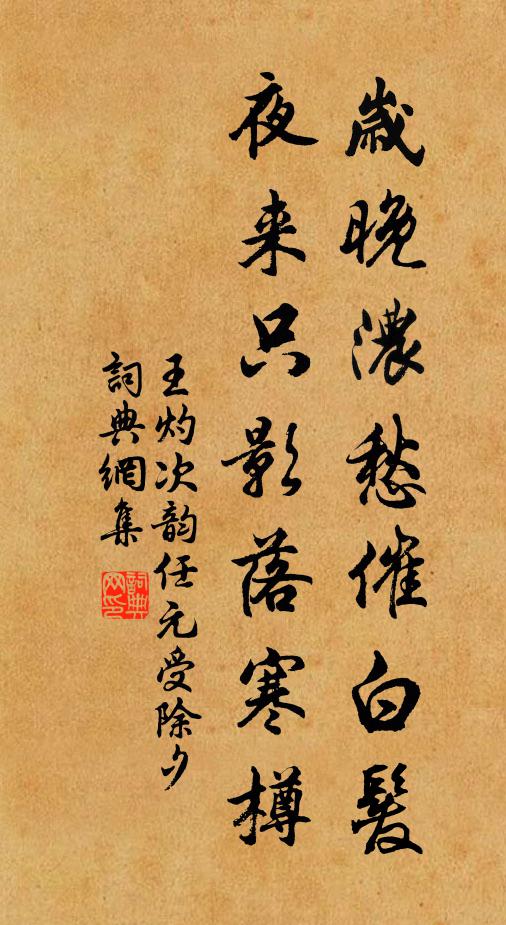 歲晚濃愁催白髮
夜来只影落寒樽
王灼次韵任元受除夕
詞典網集
詞典网印